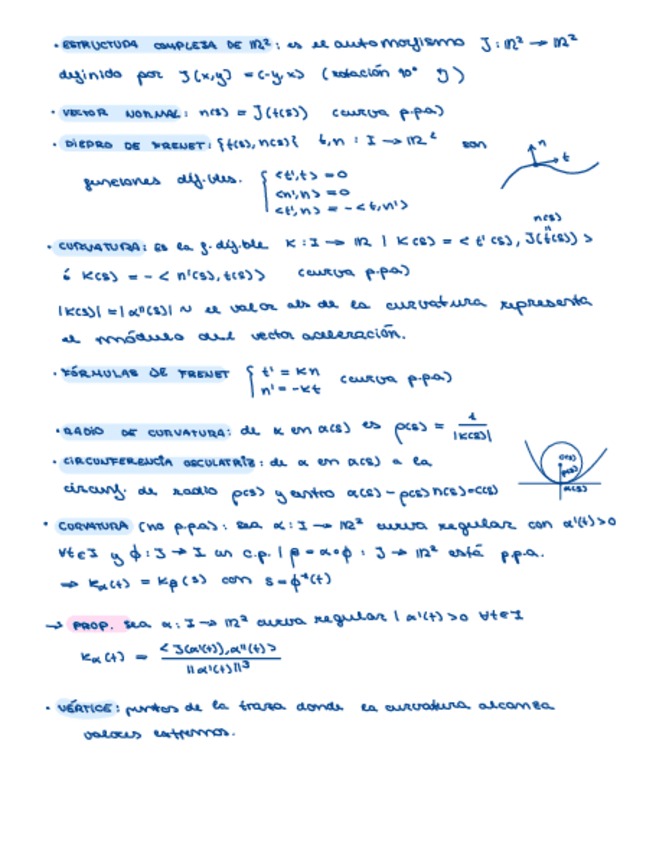 · ESTRUCTURA COMPLEJA DE ℝ²: es el automorfismo J: ℝ² → ℝ²
definido por J(x,y) = (-y,x) (rotación 90° ↺)
· VECTOR NORMAL: n(s) = J(t(s)) (curva p.p.a)
· DIEDRO DE FRENET: {t(s), n(s)} t,n : I → ℝ² son
n
t
funciones dif.bles. { <t',t> = 0
<n',n> = 0
<t',n> = - <t,n'>
n(s)
· CURVATURA: es la f. dif.ble K: I → ℝ | K(s) = < t'(s), J(t(s)) >
ó K(s) = - < n'(s), t(s) > (curva p.p.a)
|K(s)| = |α''(s)| ~ el valor abs de la curvatura representa
el módulo del vector aceleración.
· FÓRMULAS DE FRENET { t' = Kn
n' = -Kt (curva p.p.a)
· RADIO DE CURVATURA: de α en α(s) es ρ(s) = 1/|K(s)|
· CIRCUNFERENCIA OSCULATRIZ: de α en α(s) a la
c(s)
ρ(s)
α(s)
circunf. de radio ρ(s) y centro α(s) - ρ(s)n(s) = c(s)
· CURVATURA (no p.p.a): sea α: I → ℝ² curva regular con α'(t) > 0
∀t∈I y ϕ: J → I un c.p. | β = α∘ϕ : J → ℝ² está p.p.a.
⇒ Kα(t) = Kβ(s) con s = ϕ⁻¹(t)
→ PROP. sea α: I → ℝ² curva regular | α'(t) > 0 ∀t∈I
Kα(t) = < J(α'(t)), α''(t) > / ||α'(t)||³
· VÉRTICE: puntos de la traza donde la curvatura alcanza
valores extremos.